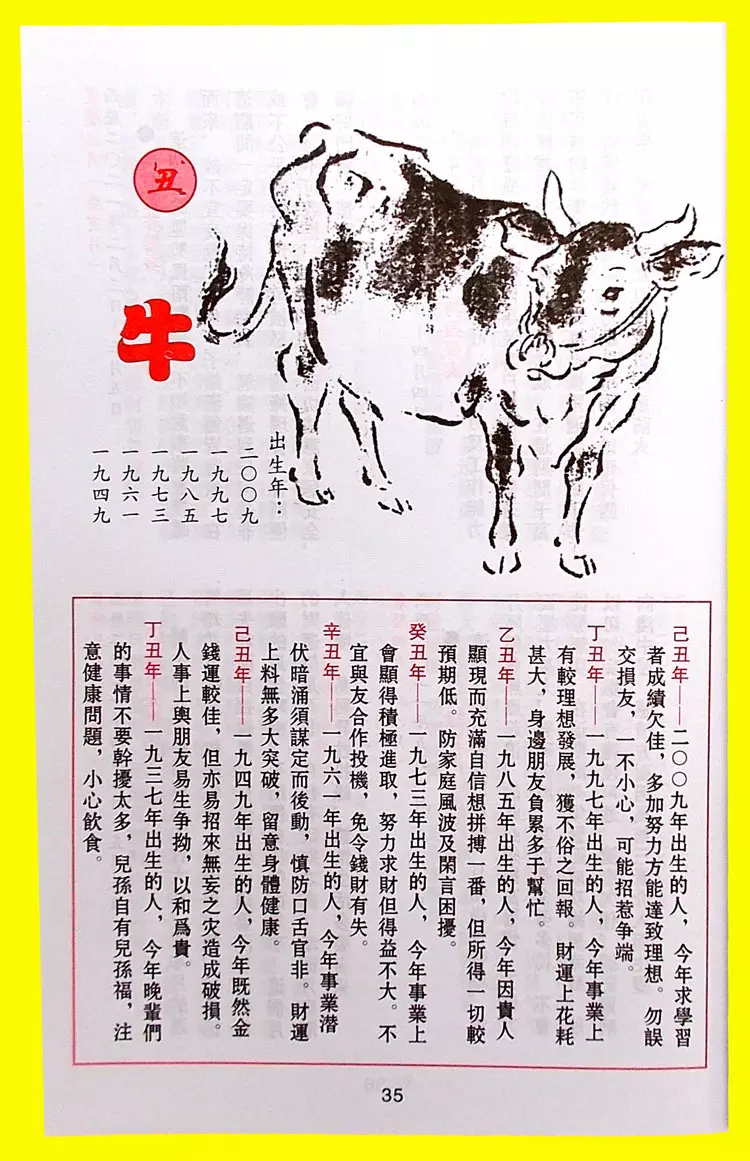 丑
牛
出生年：
二〇〇九
一九九七
一九八五
一九七三
一九六一
一九四九
己丑年——二〇〇九年出生的人，今年求學習
者成績欠佳，多加努力方能達致理想。勿誤
交損友，一不小心，可能招惹争端。
丁丑年——一九九七年出生的人，今年事業上
有較理想發展，獲不俗之回報。財運上花耗
甚大，身邊朋友負累多于幫忙。
乙丑年——一九八五年出生的人，今年因貴人
顯現而充滿自信想拼搏一番，但所得一切較
預期低。防家庭風波及閑言困擾。
癸丑年——一九七三年出生的人，今年事業上
會顯得積極進取，努力求財但得益不大。不
宜與友合作投機，免令錢財有失。
辛丑年——一九六一年出生的人，今年事業潜
伏暗涌須謀定而後動，慎防口舌官非。財運
上料無多大突破，留意身體健康。
己丑年——一九四九年出生的人，今年既然金
錢運較佳，但亦易招來無妄之灾造成破損。
人事上輿朋友易生争拗，以和爲貴。
丁丑年——一九三七年出生的人，今年晚輩們
的事情不要幹擾太多，兒孫自有兒孫福，注
意健康問題，小心飲食。
35